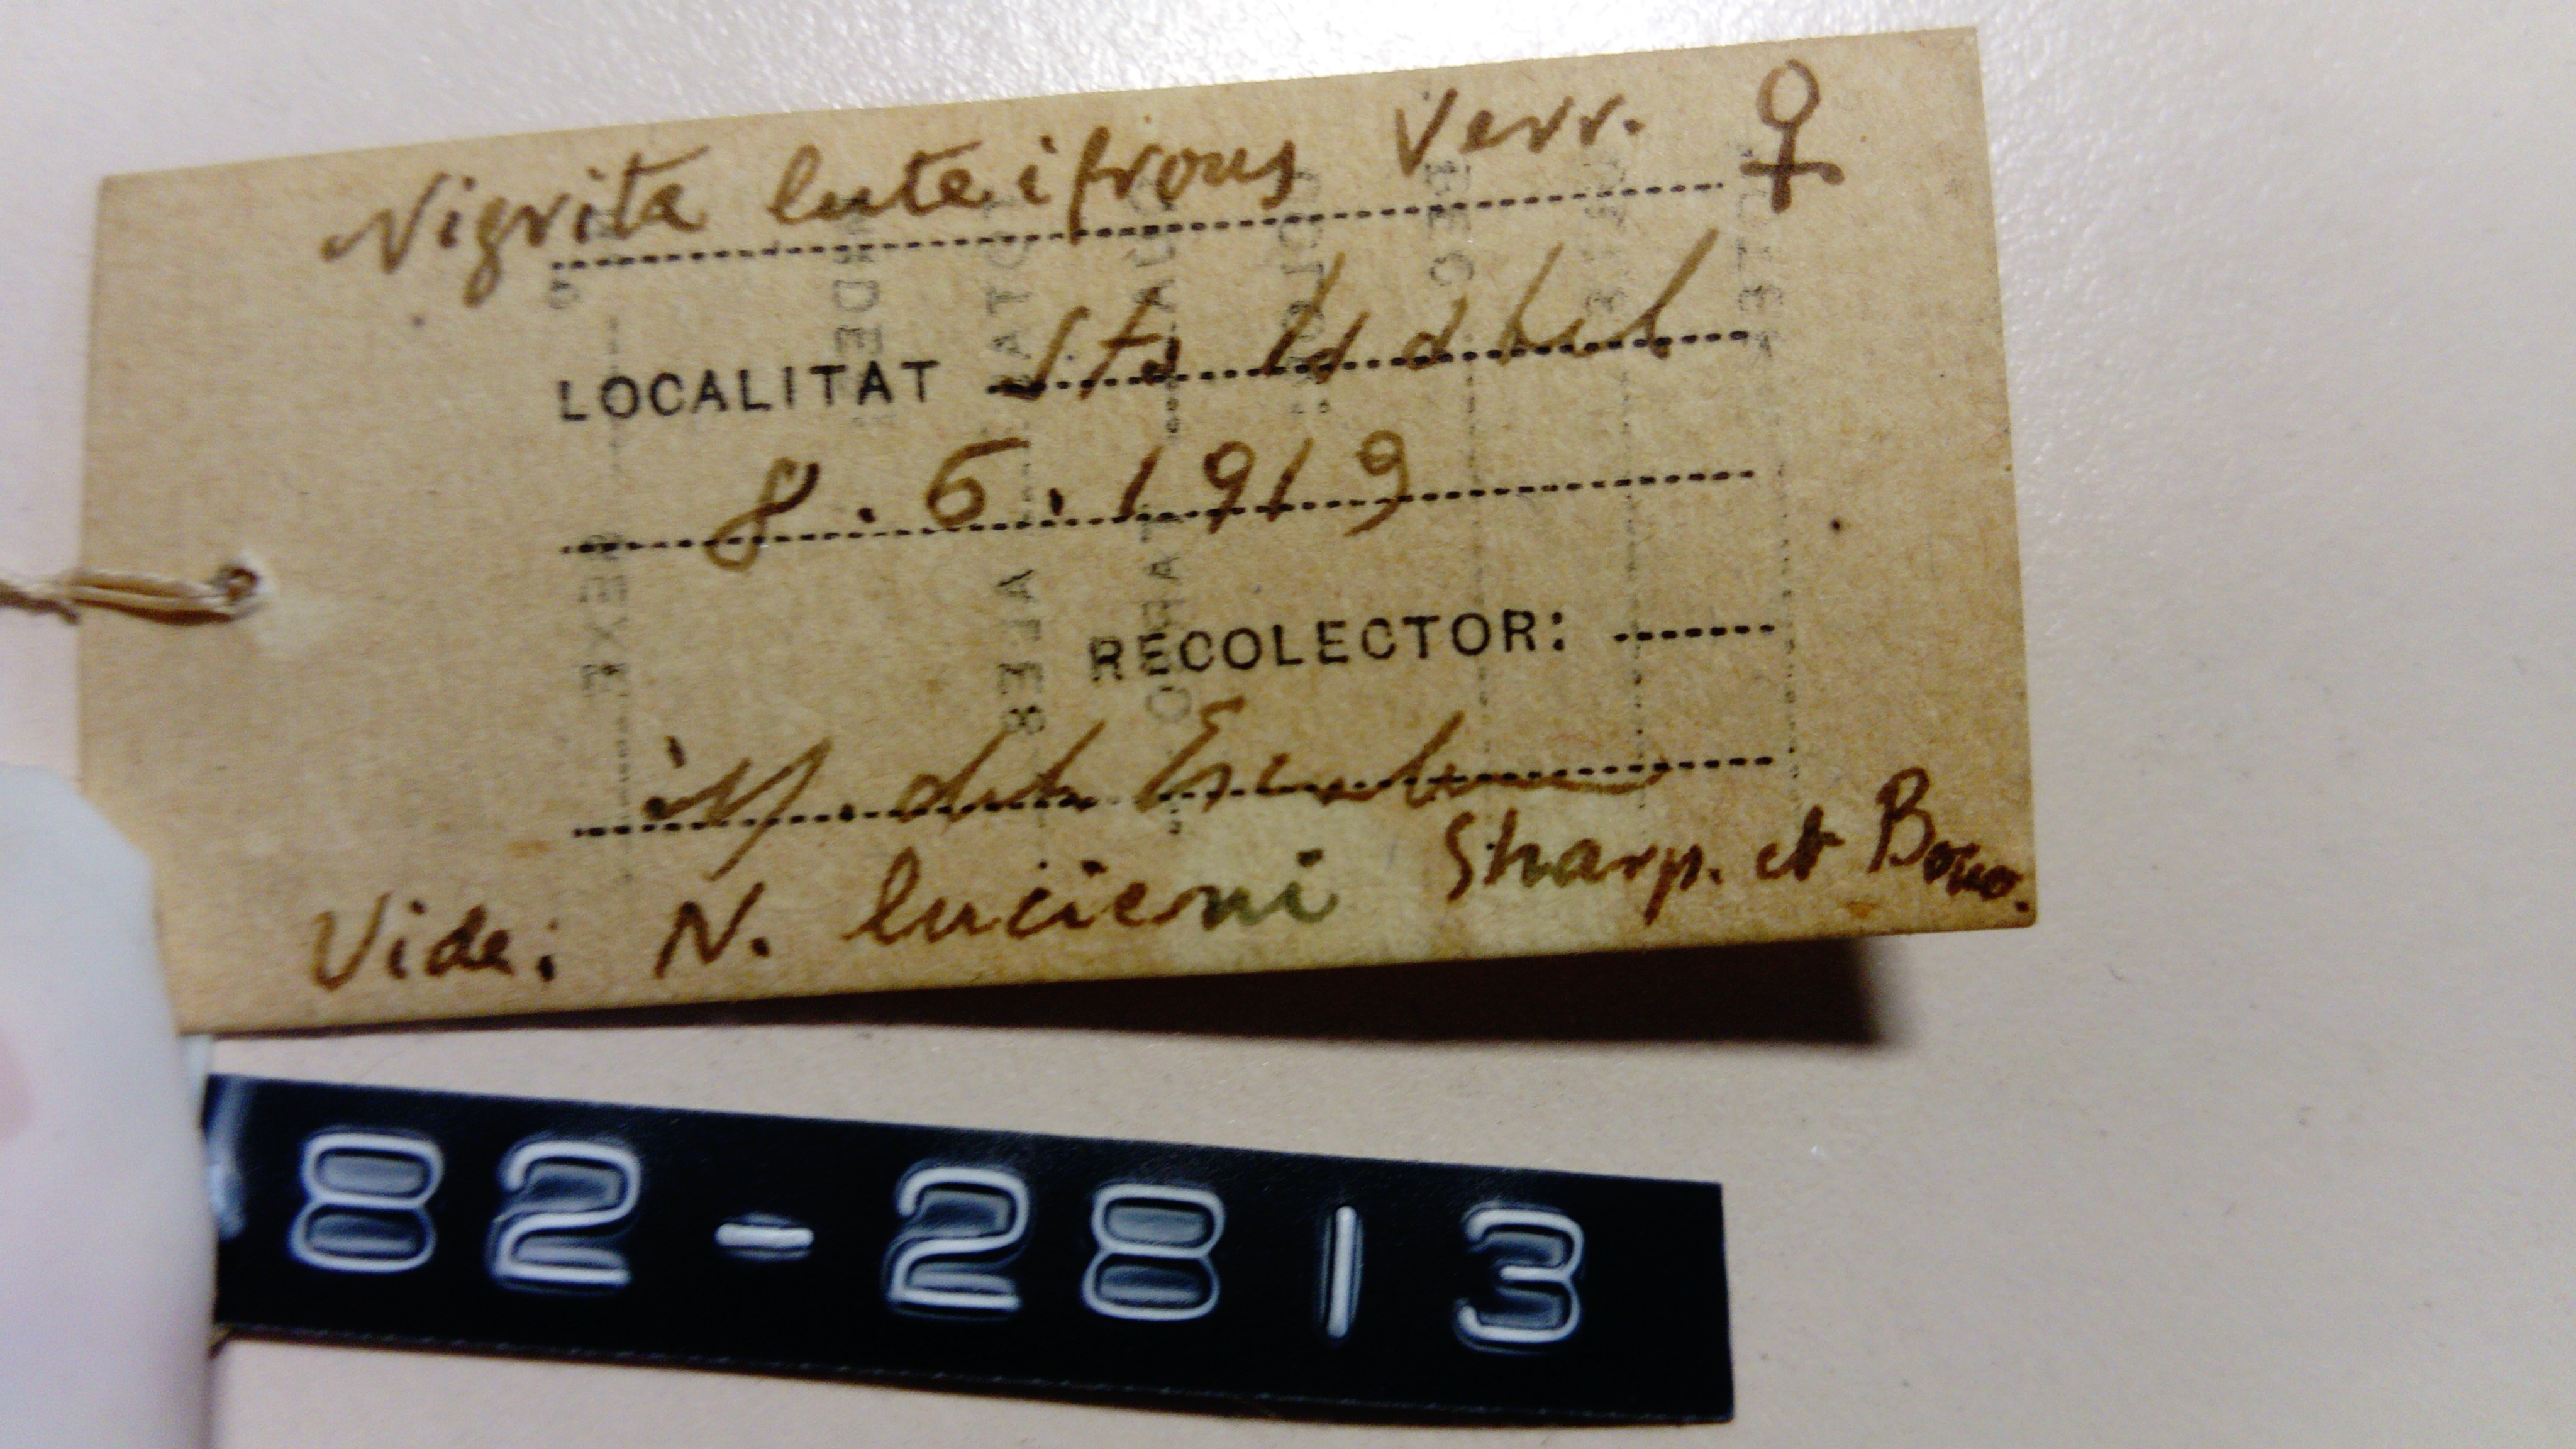 Nigrita luteifrons Verr. ♀
LOCALITAT Sta Isabel
8.6.1919
RECOLECTOR:
Vide: N. lucieni Sharp. et Bouv.
82-2813